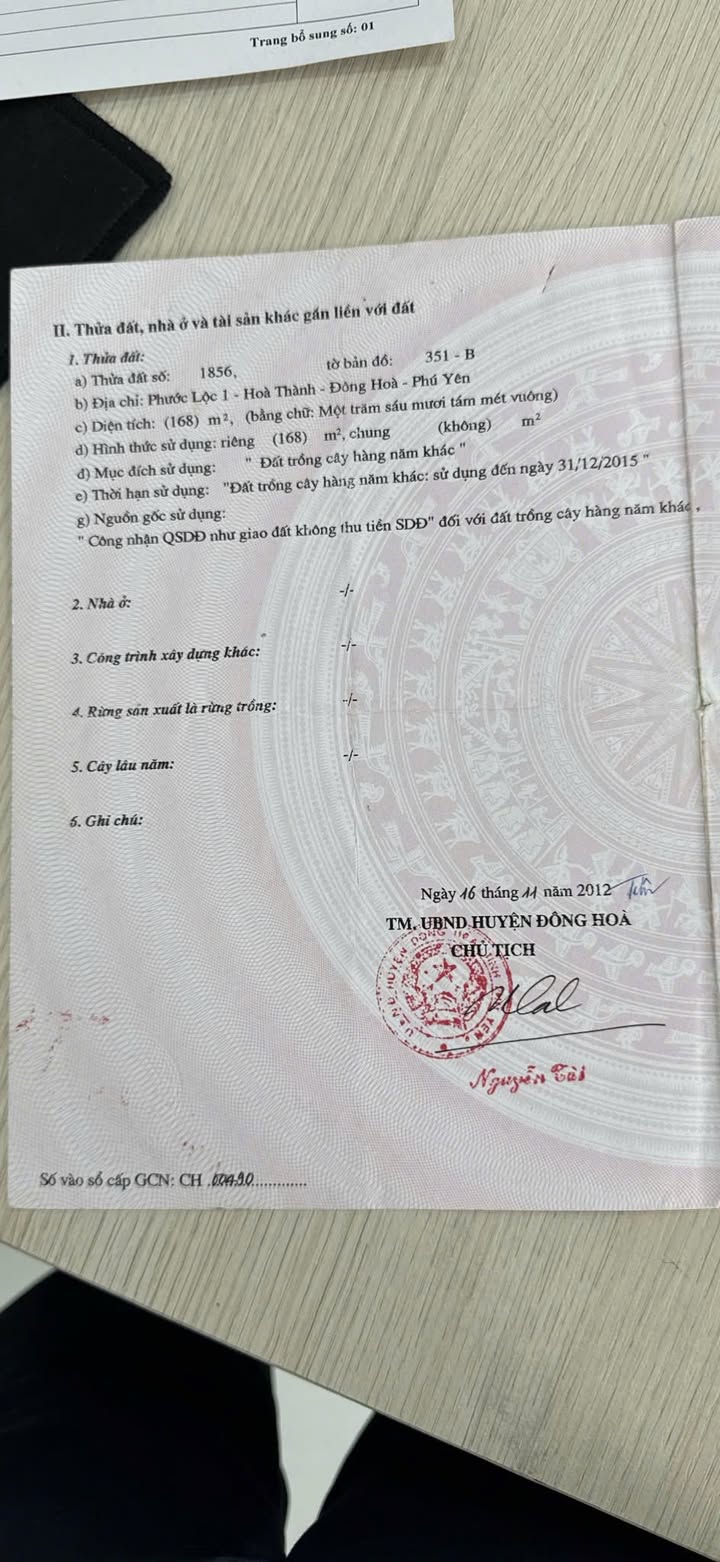 Trang bổ sung số: 01
II. Thửa đất, nhà ở và tài sản khác gắn liền với đất
1. Thửa đất:
a) Thửa đất số: 1856, tờ bản đồ: 351 - B
b) Địa chỉ: Phước Lộc 1 - Hoà Thành - Đông Hoà - Phú Yên
c) Diện tích: (168) m², (bằng chữ: Một trăm sáu mươi tám mét vuông)
d) Hình thức sử dụng: riêng (168) m², chung (không) m²
đ) Mục đích sử dụng: " Đất trồng cây hàng năm khác "
e) Thời hạn sử dụng: "Đất trồng cây hàng năm khác: sử dụng đến ngày 31/12/2015 "
g) Nguồn gốc sử dụng:
" Công nhận QSDĐ như giao đất không thu tiền SDĐ" đối với đất trồng cây hàng năm khác .
2. Nhà ở: -/-
3. Công trình xây dựng khác: -/-
4. Rừng sản xuất là rừng trồng: -/-
5. Cây lâu năm: -/-
6. Ghi chú:
Ngày 16 tháng 11 năm 2012
TM. UBND HUYỆN ĐÔNG HOÀ
CHỦ TỊCH
Nguyễn Tài
Số vào sổ cấp GCN: CH 00490.............